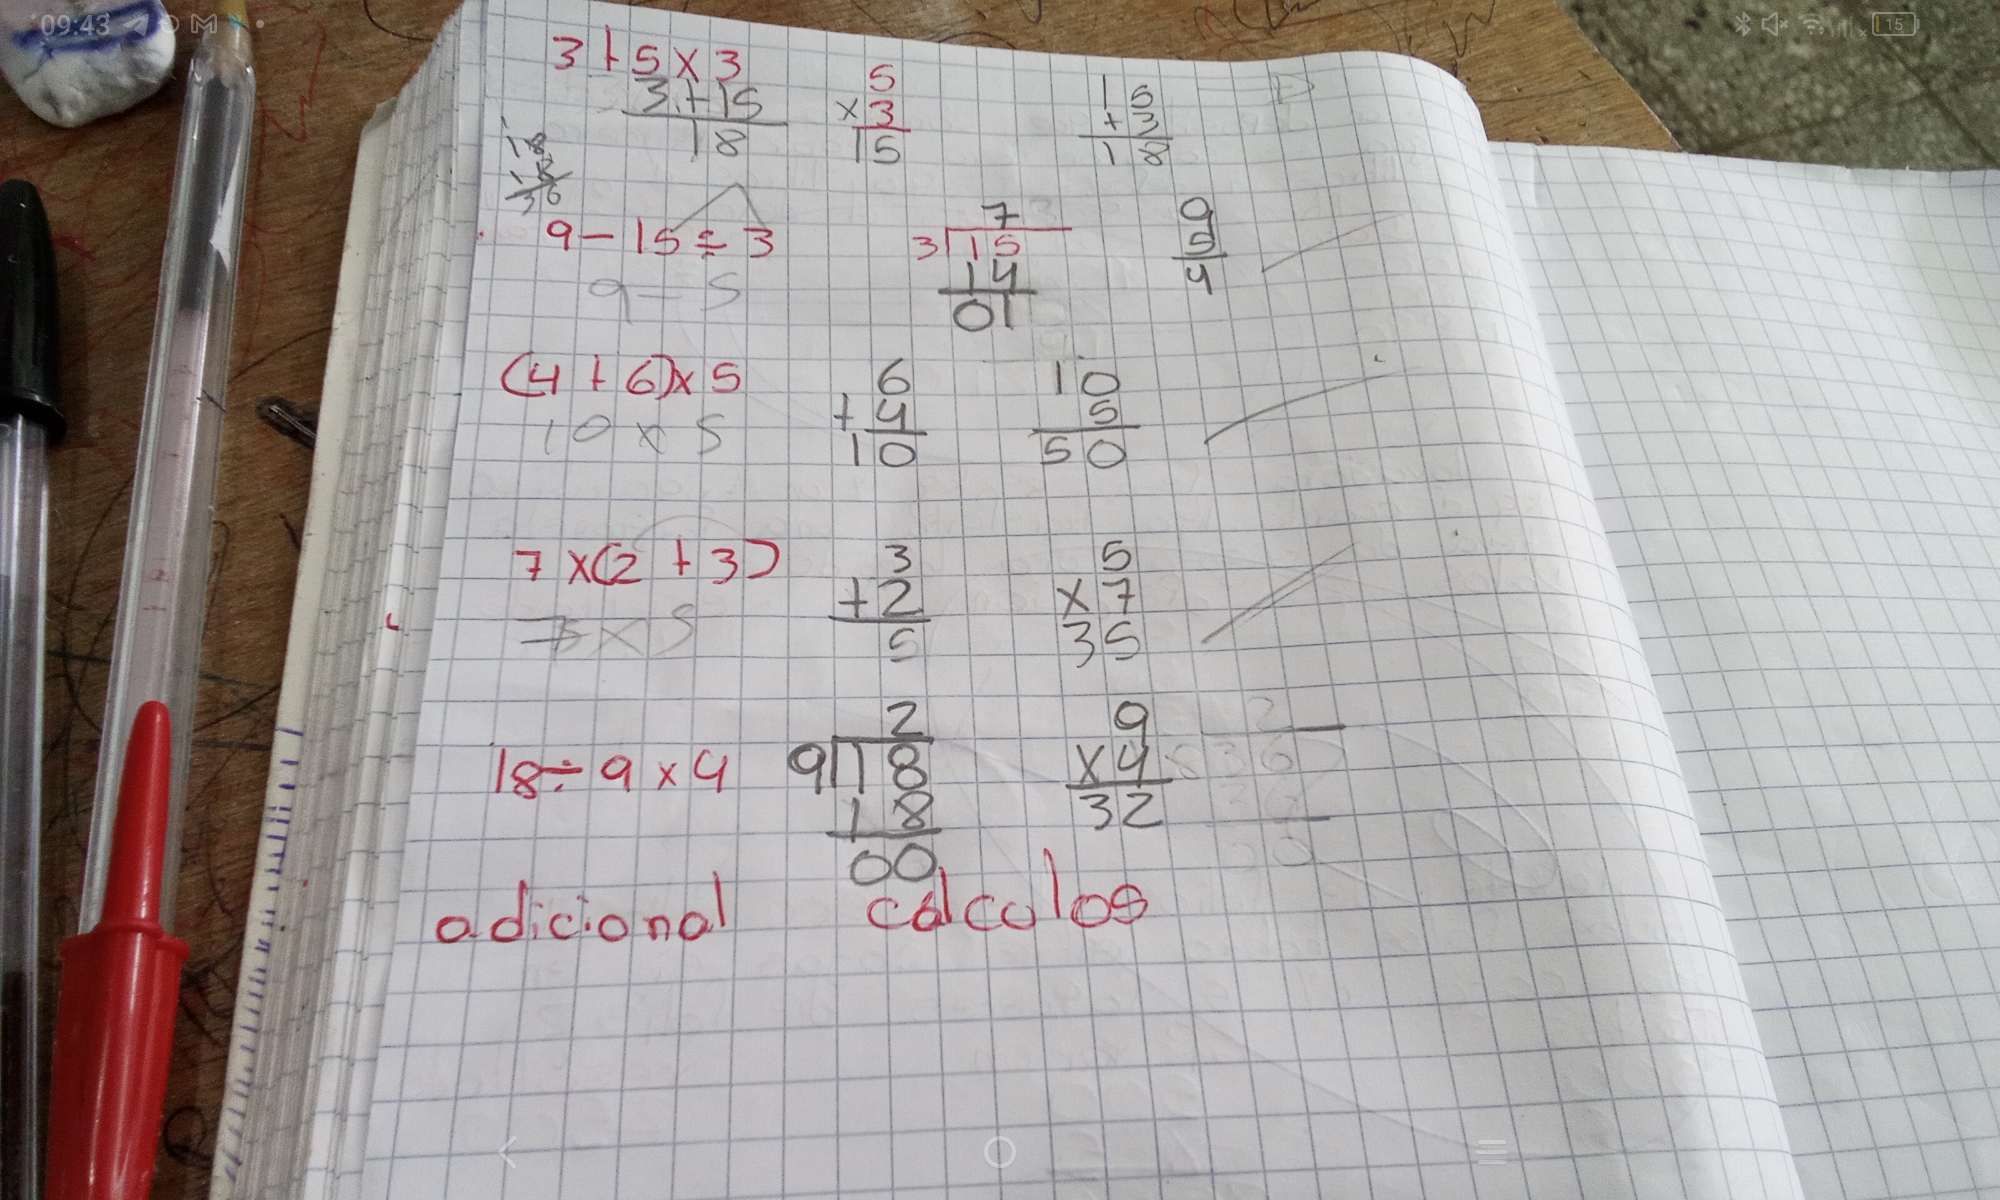 09:43
15
3+5x3
3+15
18
5
x3
15
15
+3
18
18
18
36
9-15÷3
9-5
7
3 15
14
01
9
5
4
(4+6)x5
10x5
6
+4
10
10
5
50
7x(2+3)
x5
3
+2
5
5
x7
35
18÷9x4
2
9 18
18
00
9
x4
32
adicional calculos